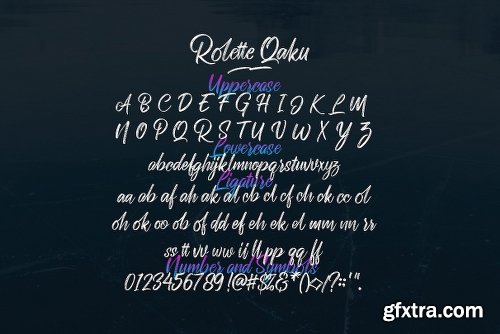 Rolette Qaku
Uppercase
A B C D E F G H I J K L M
N O P Q R S T U V W X Y Z
Lowercase
abcdefghijklmnopqrstuvwxyz
Ligature
aa ab af ah ak al cl cf ch ok cc ol
oh ok oo ob of dd ef eh ek el mm nn rr
ss tt vv ww ii ll pp gg ff
Number and Symbols
0123456789!@#$%&*()<>/?:;'".
gfxtra.com